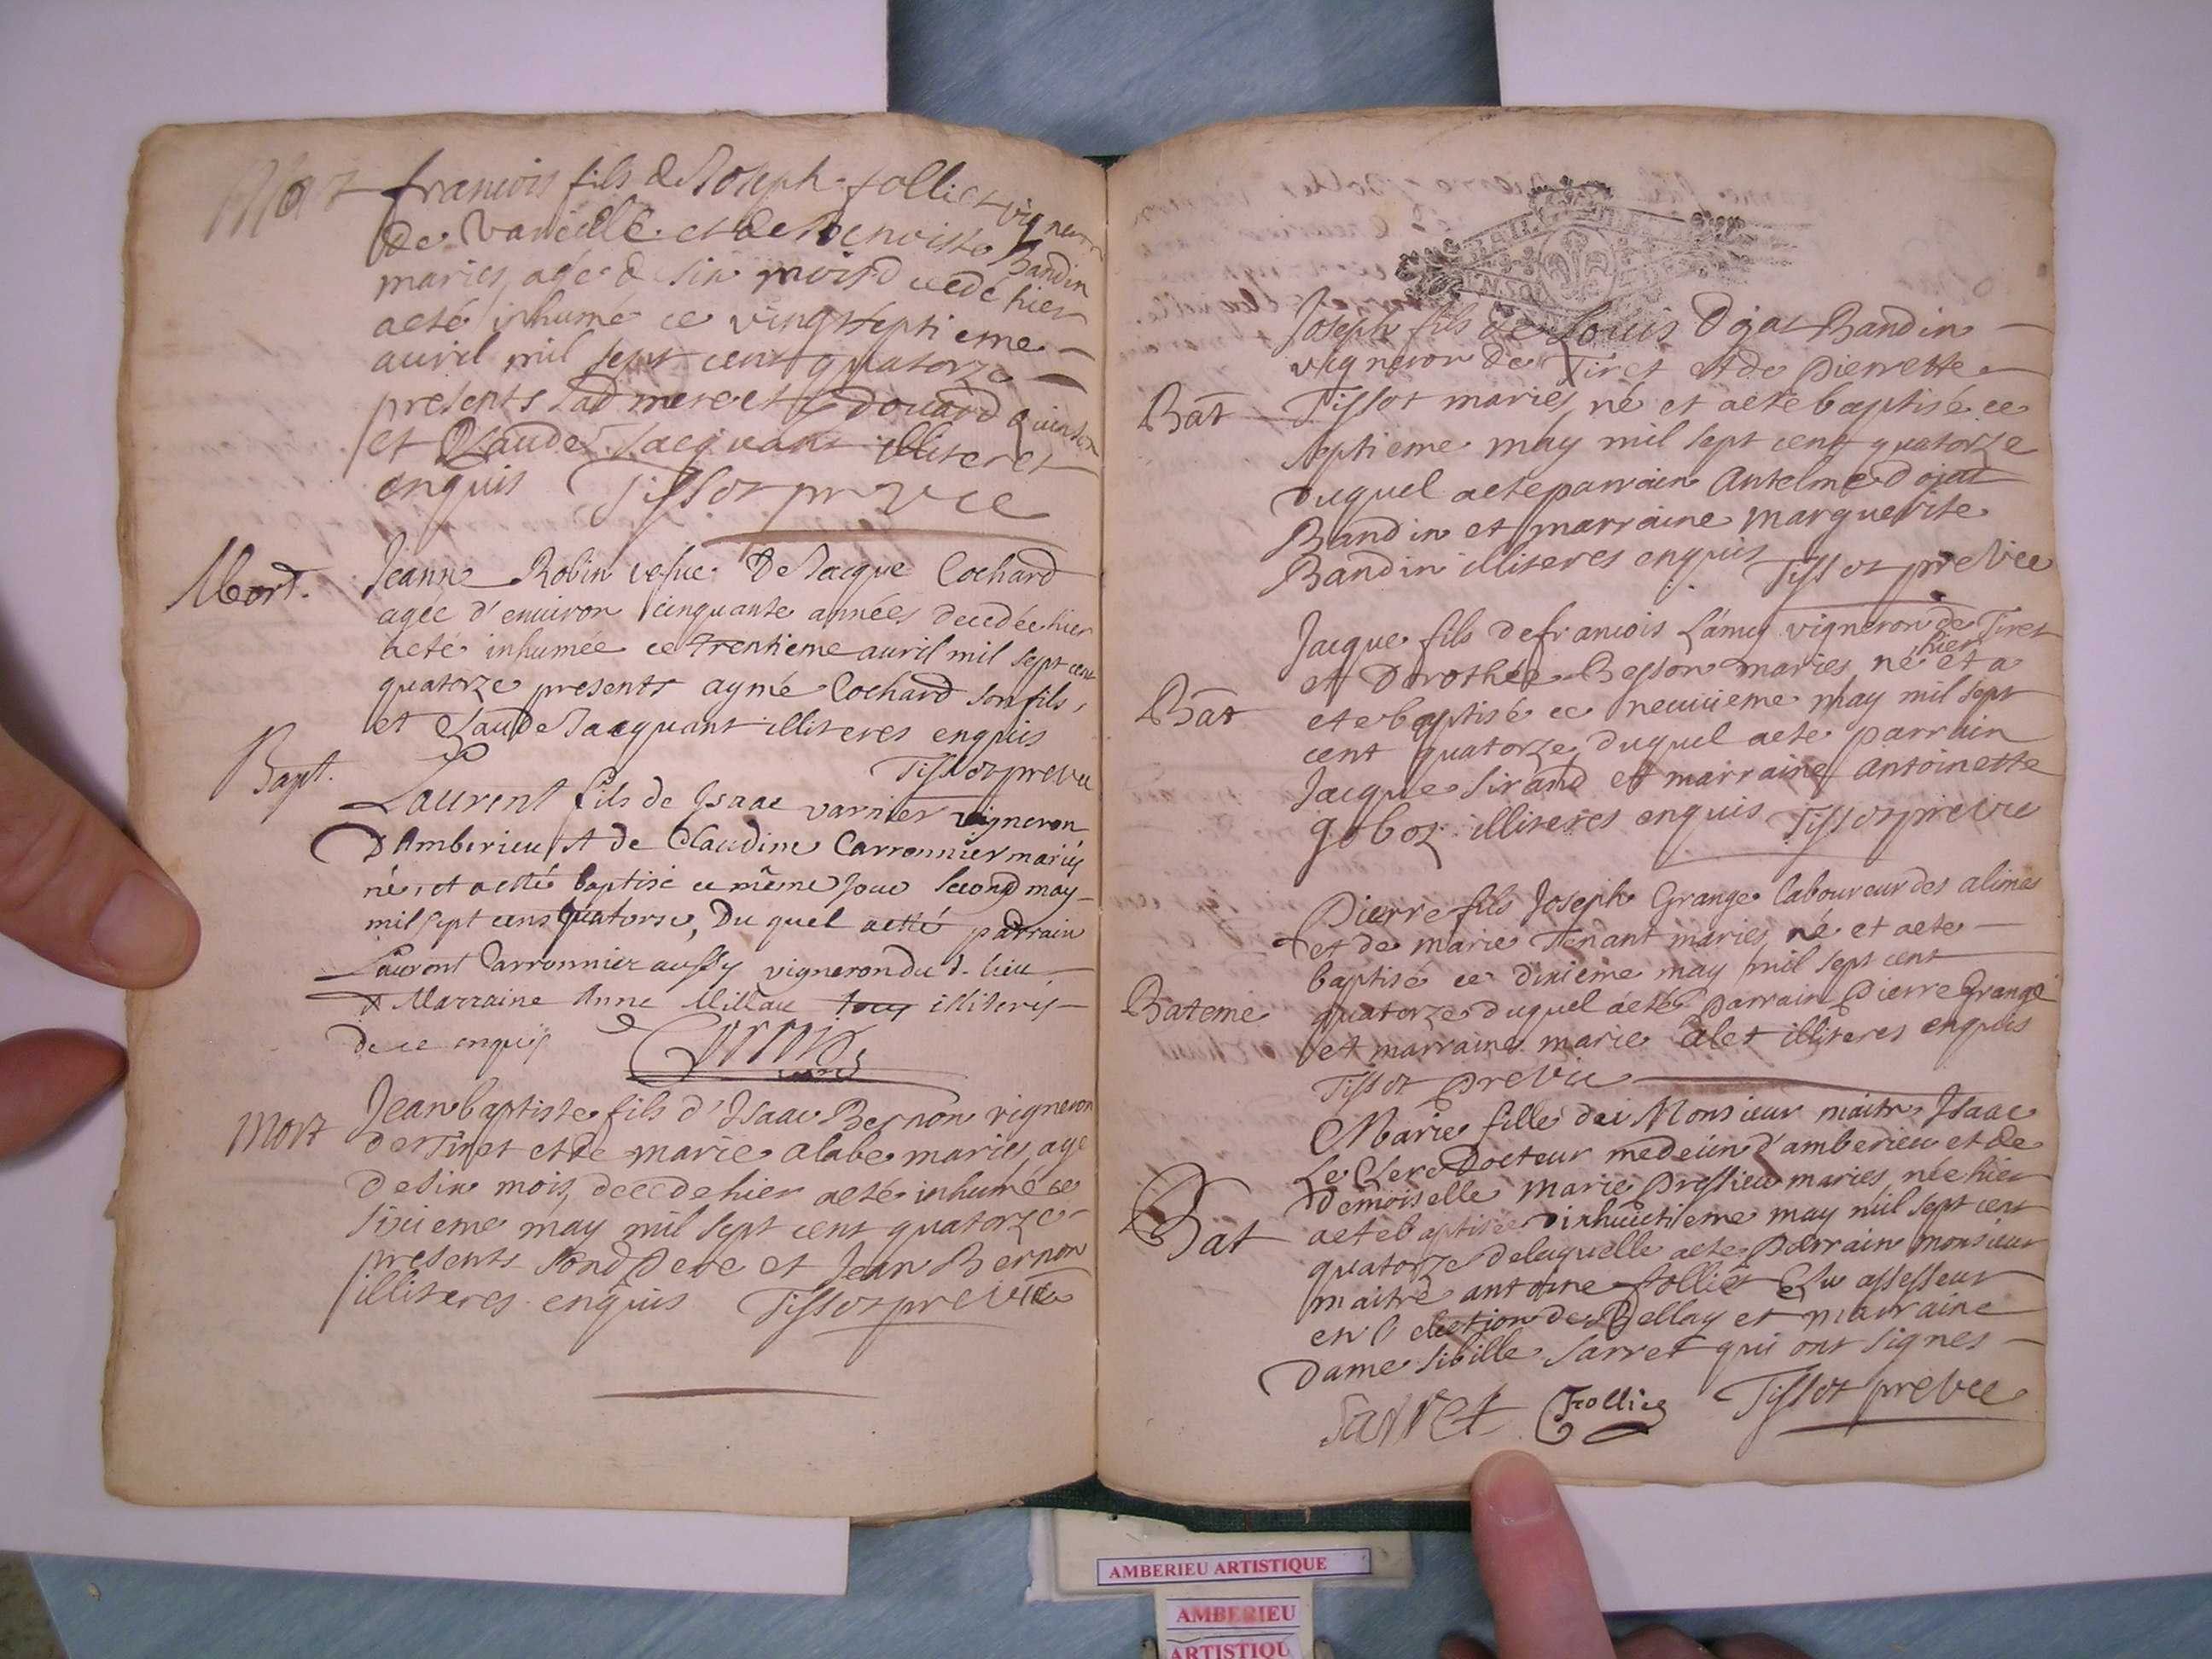 Mort
francois fils de Joseph folliet vigneron
de Vareille et de Benoiste Bandin
maries, agé de six mois decedé hier
aeté inhumé ce vingtseptieme
auril mil sept cent quatorze
presents sad mere et Edouard Quinson
et Claude Jacquant illiteres
enquis Tissot pr vic
Mort.
Jeanne Robin vefue De Jacque Cochard
agée d'enuiron cinquante années decedée hier
aeté inhumée ce trentieme auril mil sept cent
quatorze presents aymé Cochard son fils,
et Claude Jacquant illiteres enquis
Tissot pre vic
Bapt.
Laurent fils de Isaac varnier vigneron
D'Amberieu et de Claudine Carronnier mariés
né, et aetté baptisé ce même jour second may
mil sept cens quatorse, Du quel aetté parrain
Laurent Carronnier aussy vigneron du d. lieu
& Marraine Anne Millau tous illiterés
de ce enquis
mort
Jean baptiste fils d'Isaac Bernon vigneron
de Tiret et de marie alabe maries, agé
de six mois, decede hier aeté inhumé ce
sixieme may mil sept cent quatorze
presents sond pere et Jean Bernon
illiteres enquis Tissot pre vic
Joseph fils de Louis Dojat Bandin
vigneron de Tiret et de pierrette
Bat
Tissot maries, né et aeté baptisé ce
septieme may mil sept cent quatorze
duquel aeté parrain Antelme Dojat
Bandin et marraine marguerite
Bandin illiteres enquis Tissot pre Vic
Jacque fils de francois Lámy vigneron de Tiret
hier
et Dorothée Besson maries, né et a
Bat
eté baptisé ce neuuieme may mil sept
cent quatorze, duquel aeté parrain
Jacque Sirand et marraine Antoinette
goboz illiteres enquis Tissot pre vic
Pierre fils Joseph Grange laboureur des alimes
et de marie Tenant maries, né et aeté
baptisé ce dixieme may mil sept cent
Bateme
quatorze duquel aeté parrain Pierre Grange
et marraine marie Calet illiteres enquis
Tissot pre Vic
Marie fille dei Monsieur maitre Isaac
Le Clerc Docteur medecin d'amberieu et de
demoiselle Marie Pressieu maries, née hier
Bat
aeté baptisée dixhuictieme may mil sept cent
quatorze de laquelle aeté parrain monsieur
maitre antoine follict Elu assesseur
en l'election de Bellay et marraine
Dame Sibille Sarret qui ont signes
Sarret Follict Tissot pre vic
AMBERIEU ARTISTIQUE
AMBERIEU
ARTISTIQU